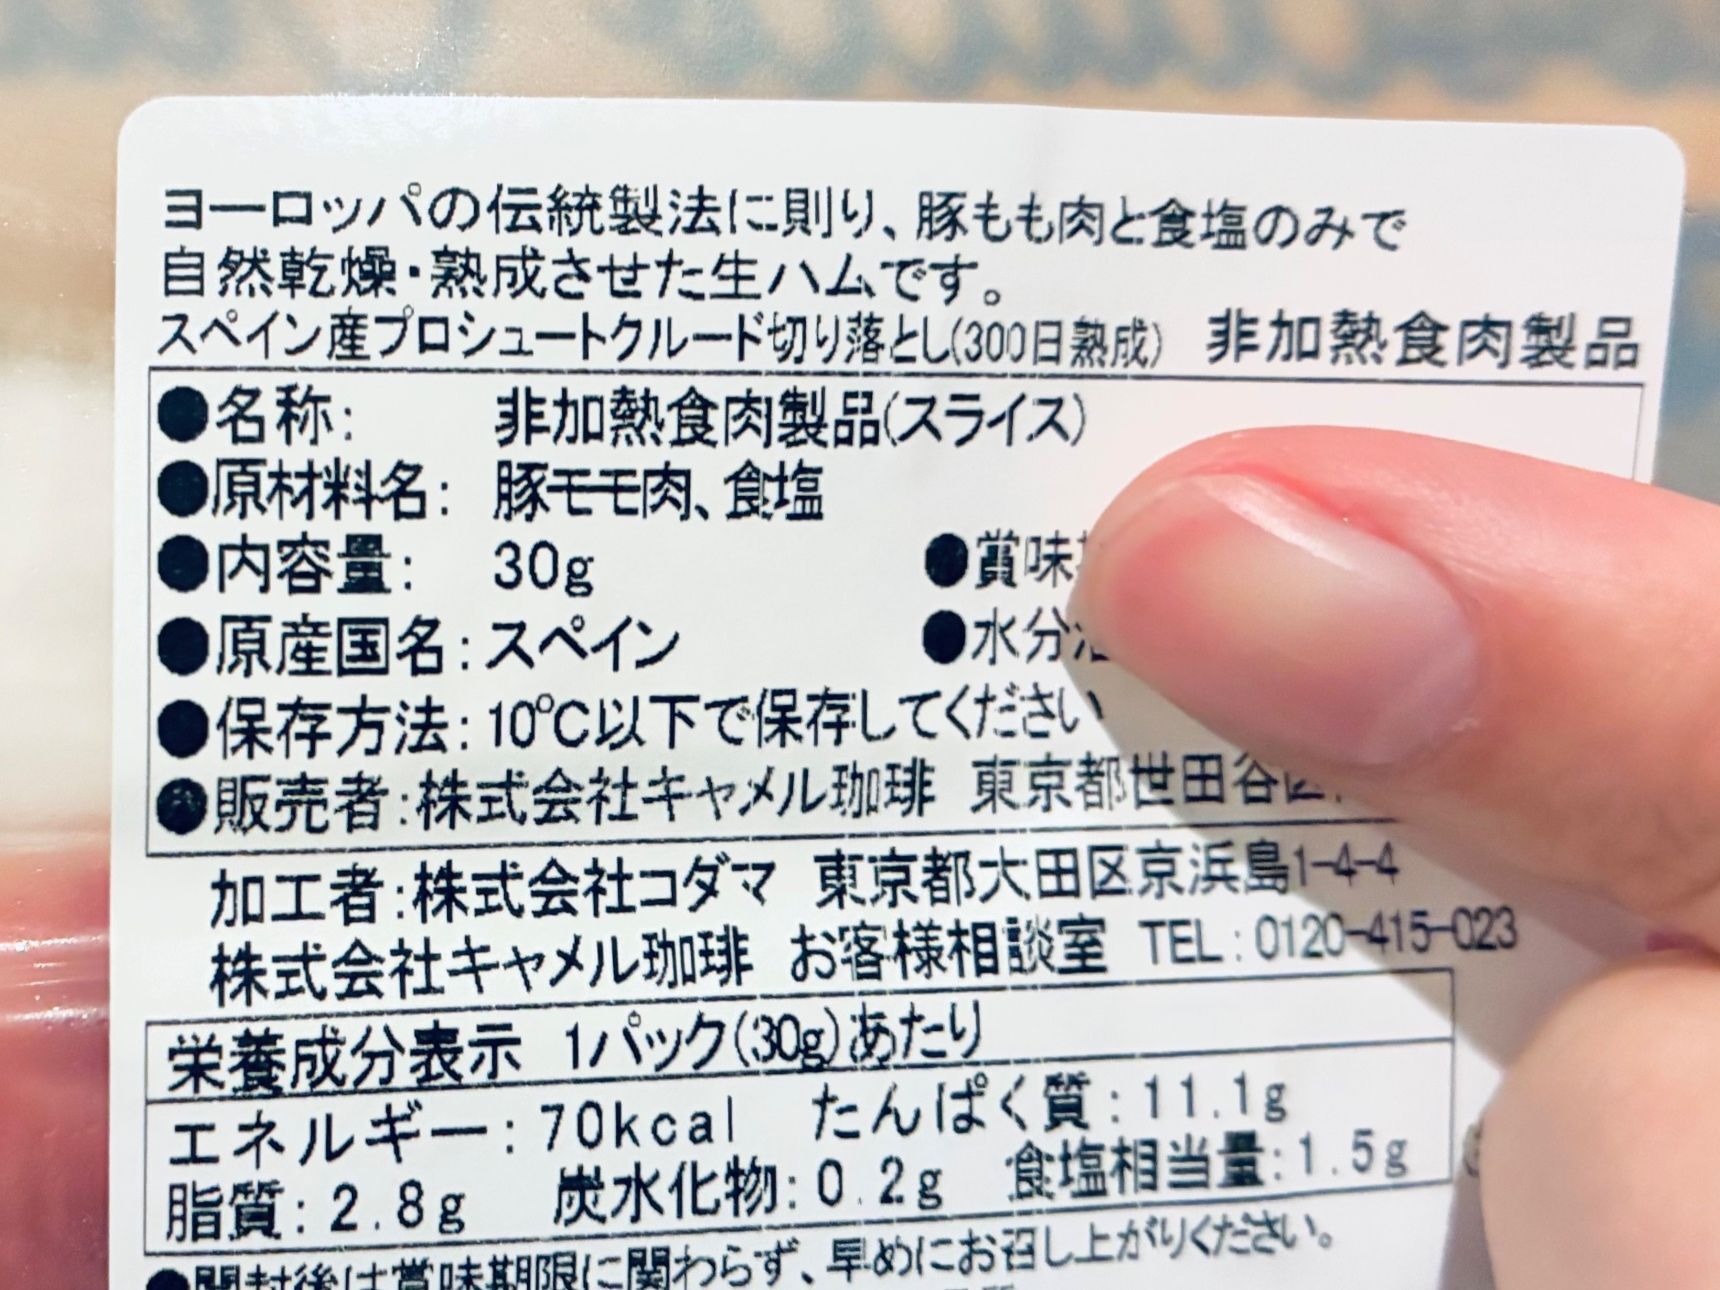 ヨーロッパの伝統製法に則り、豚もも肉と食塩のみで
自然乾燥・熟成させた生ハムです。
スペイン産プロシュートクルード切り落とし(300日熟成) 非加熱食肉製品
●名称: 非加熱食肉製品(スライス)
●原材料名: 豚モモ肉、食塩
●内容量: 30g ●賞味
●原産国名:スペイン ●水分
●保存方法:10℃以下で保存してください
●販売者:株式会社キャメル珈琲 東京都世田谷区
加工者:株式会社コダマ 東京都大田区京浜島1-4-4
株式会社キャメル珈琲 お客様相談室 TEL:0120-415-023
栄養成分表示 1パック(30g)あたり
エネルギー:70kcal たんぱく質:11.1g
脂質:2.8g 炭水化物:0.2g 食塩相当量:1.5g
●開封後は賞味期限に関わらず、早めにお召し上がりください。